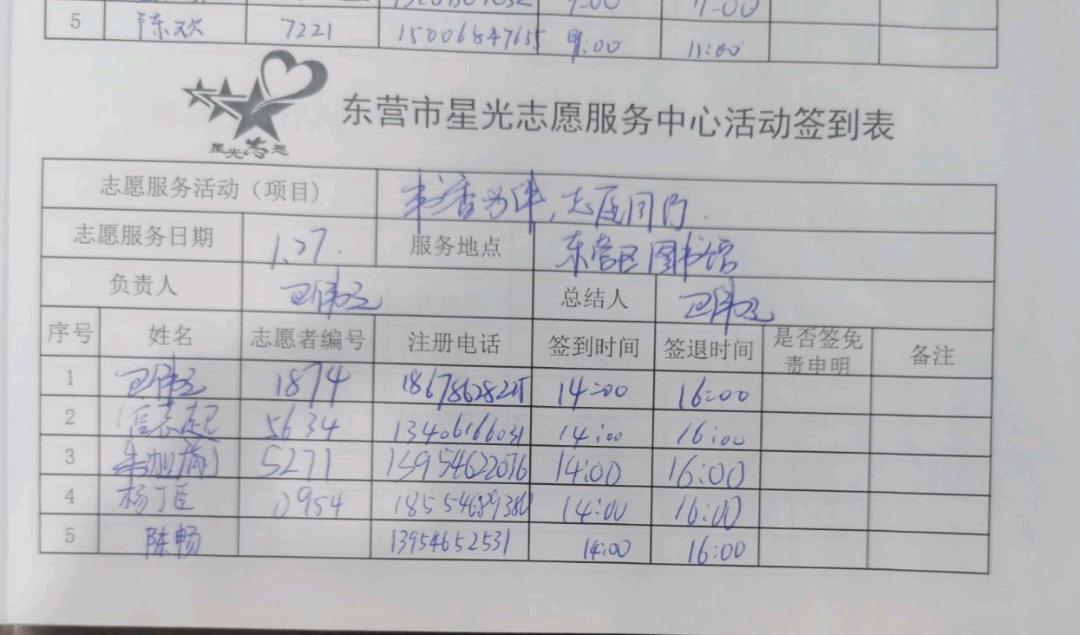 5 陈欢 7221 15006847635 9:00 11:00
星光志愿
东营市星光志愿服务中心活动签到表
志愿服务活动（项目） 书香为伴,志愿同行.
志愿服务日期 1.27. 服务地点 东营区图书馆
负责人 总结人
序号 姓名 志愿者编号 注册电话 签到时间 签退时间 是否签免责申明 备注
1 1874 14:00 16:00
2 5634 13406166031 14:00 16:00
3 5271 15954622076 14:00 16:00
4 杨丁臣 0954 18554689380 14:00 16:00
5 陈畅 13954652531 14:00 16:00